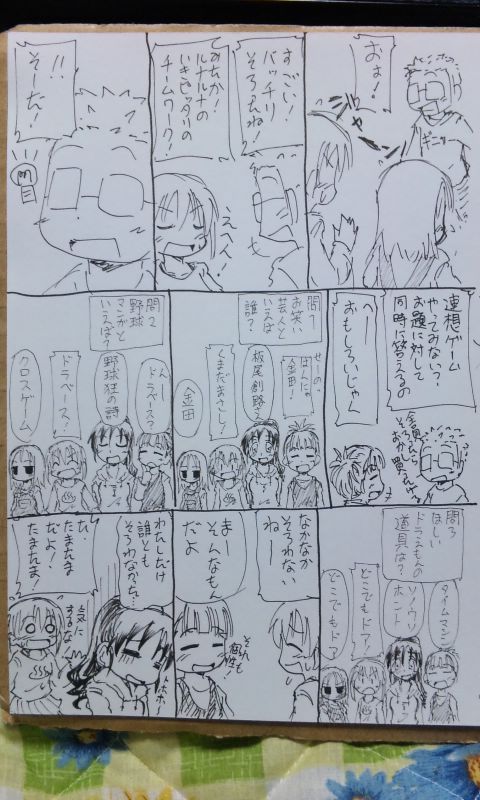 おぉ！
ギュッ
すごい！
バッチリ
そろたね！
みちか！
ルナルナの
いきピッタリの
チームワーク！
えへへ！
!!
そーだ！
連想ゲーム
やってみない？
お題に対して
同時に答えるの
へー
おもしろいじゃん
全員そろたら
問1
お笑い
芸人と
いえば
誰？
せーのっ
金田！
板尾創路さん
くまだまさし！
金田
問2
野球
マンガと
いえば？
んー
ドラベース？
野球狂の詩
ドラベース？
クロスゲーム
問3
ほしい
ドラえもんの
道具は？
タイムマシン
ソノウソ
ホント
どこでもドア
どこでもドア
なかなか
そろわない
ねー
まー
そんなもん
だよ
それも
個性！
わたしだけ
誰とも
そろわなかた…
ホホ
たまたま
だよ！
たまたま！
気に
するな